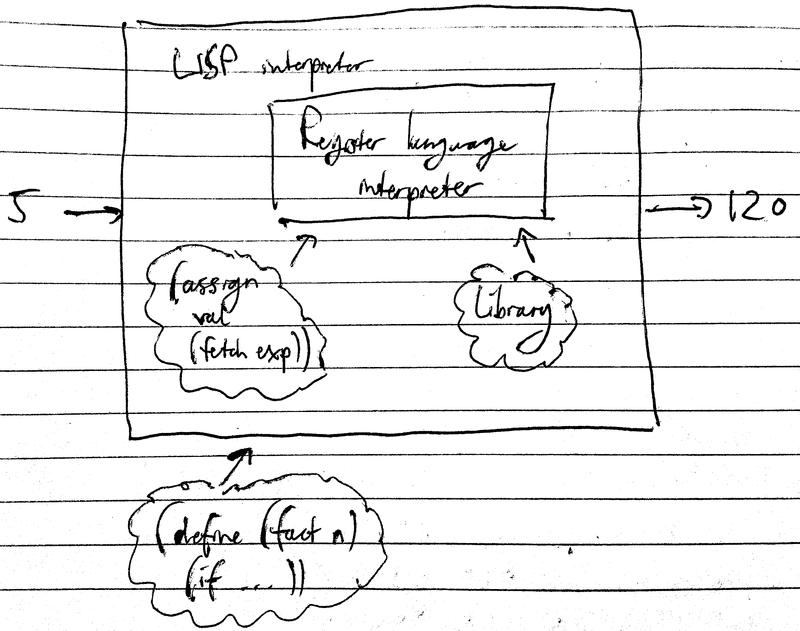 LISP interpreter
Register language
interpreter
5
120
(assign
val
(fetch exp))
Library
(define (fact n)
(if ....))